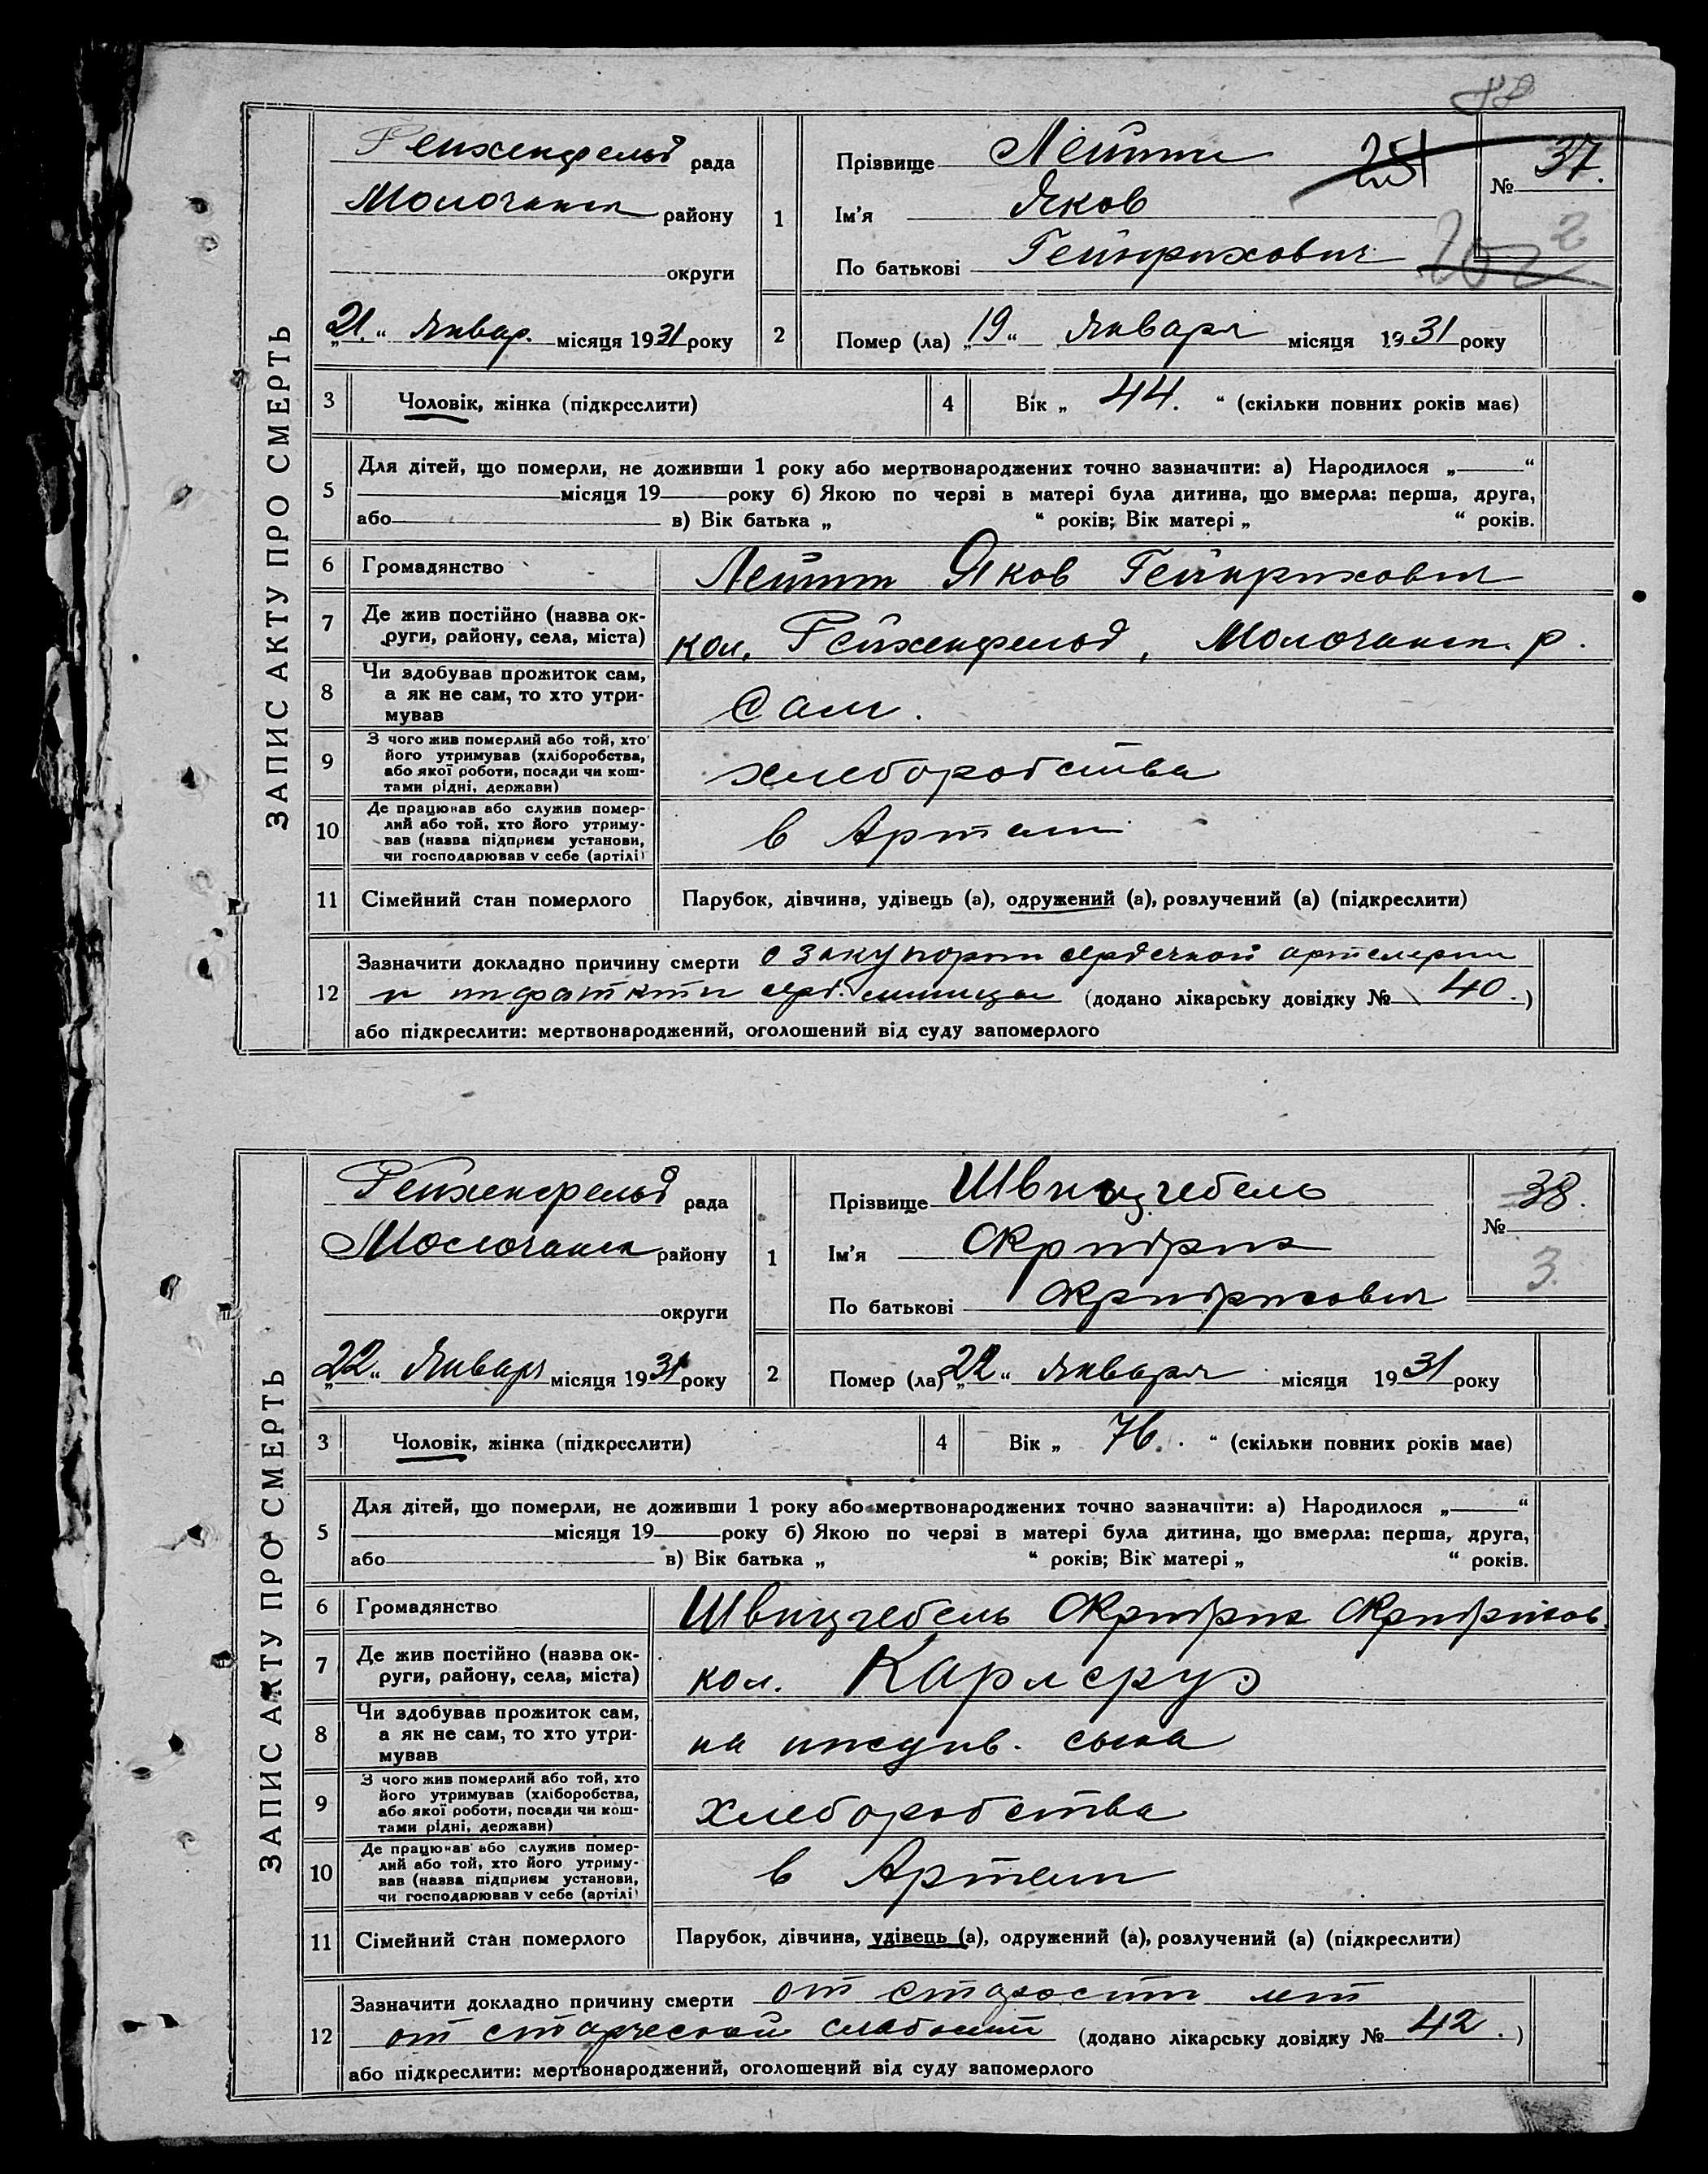 ЗАПИС АКТУ ПРО СМЕРТЬ
Рейхенфельд рада
Молочанск району
округи
„21.“ Январ. місяця 1931 року
1
Прізвище Лейтт
Ім'я Яков
По батькові Гейнрихович
251
№ 37.
2
2 Помер (ла) „19“ Января місяця 1931 року
3 Чоловік, жінка (підкреслити)
4 Вік „44.“ (скільки повних років має)
5 Для дітей, що померли, не доживши 1 року або мертвонароджених точно зазначити: а) Народилося „ “
місяця 19 року б) Якою по черзі в матері була дитина, що вмерла: перша, друга,
або в) Вік батька „ “ років; Вік матері „ “ років.
6 Громадянство Лейтт Яков Гейнрихович
7 Де жив постійно (назва ок-
руги, району, села, міста) кол. Рейхенфельд, Молочанск. р.
8 Чи здобував прожиток сам,
а як не сам, то хто утри-
мував Сам.
9 З чого жив померлий або той, хто
його утримував (хліборобства,
або якої роботи, посади чи кош-
тами рідні, держави) хлеборобства
10 Де працював або служив помер-
лий або той, хто його утриму-
вав (назва підприєм установи,
чи господарював у себе (артілі) в Артели
11 Сімейний стан померлого Парубок, дівчина, удівець (а), одружений (а), розлучений (а) (підкреслити)
12 Зазначити докладно причину смерти закупорки сердечной артелерии
и (додано лікарську довідку № 40.)
або підкреслити: мертвонароджений, оголошений від суду запомерлого
ЗАПИС АКТУ ПРО СМЕРТЬ
Рейхенфельд рада
Молочанск району
округи
„22“ Января місяця 1931 року
1
Прізвище Швицгебель
Ім'я Фридрих
По батькові Фридрихович
№ 38.
3.
2 Помер (ла) „22“ Января місяця 1931 року
3 Чоловік, жінка (підкреслити)
4 Вік „76.“ (скільки повних років має)
5 Для дітей, що померли, не доживши 1 року або мертвонароджених точно зазначити: а) Народилося „ “
місяця 19 року б) Якою по черзі в матері була дитина, що вмерла: перша, друга,
або в) Вік батька „ “ років; Вік матері „ “ років.
6 Громадянство Швицгебель Фридрих Фридрихов.
7 Де жив постійно (назва ок-
руги, району, села, міста) кол. Карлсруэ
8 Чи здобував прожиток сам,
а як не сам, то хто утри-
мував на иждив. сына
9 З чого жив померлий або той, хто
його утримував (хліборобства,
або якої роботи, посади чи кош-
тами рідні, держави) Хлеборобства
10 Де працював або служив помер-
лий або той, хто його утриму-
вав (назва підприєм установи,
чи господарював у себе (артілі) в Артели
11 Сімейний стан померлого Парубок, дівчина, удівець (а), одружений (а), розлучений (а) (підкреслити)
12 Зазначити докладно причину смерти от старости лет
от старческой слабости (додано лікарську довідку № 42.)
або підкреслити: мертвонароджений, оголошений від суду запомерлого